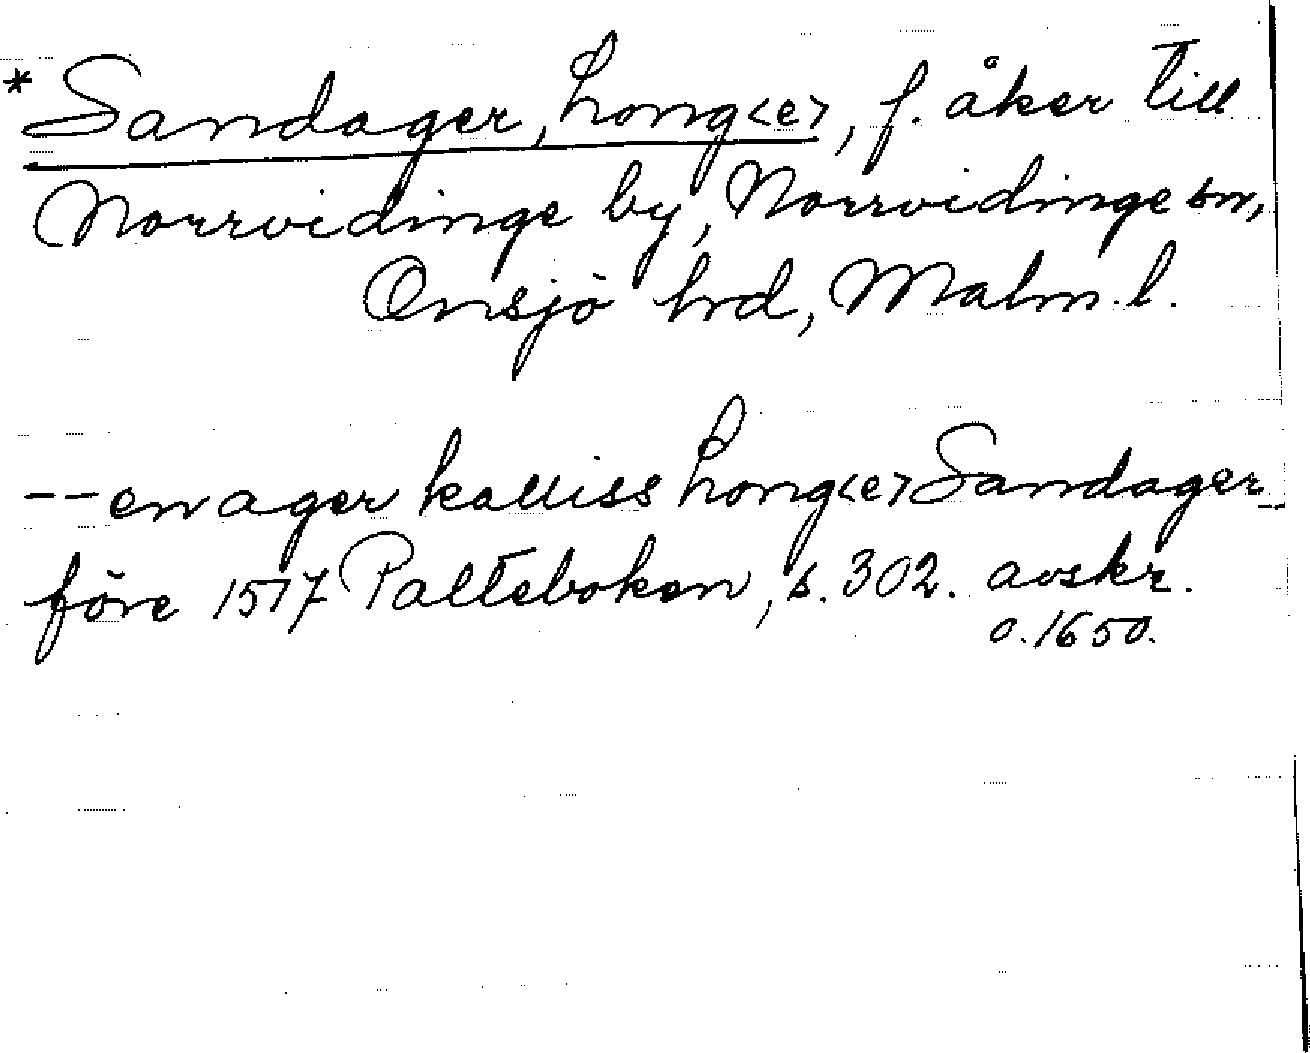 *Sandager, Long<e>, f. åker till
Norrvidinge by, Norrvidinge sn,
Onsjö hrd, Malm. l.
-- en ager kalliss Long<e> Sandager
före 1517 Palteboken, s. 302. avskr.
o. 1650.